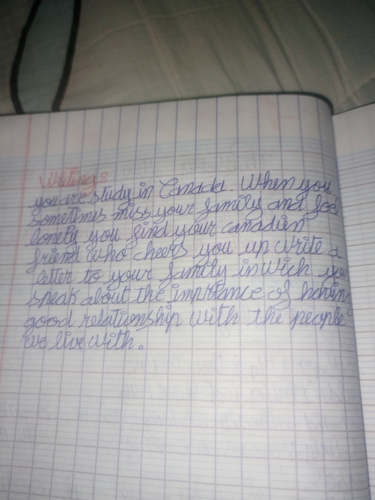 Writing:
you are study in Canada. When you
sometimes miss your family and feel
lonely you find your canadian
friend who cheers you up write a
letter to your family in wich you
speak about the imprtance of havin
good relationship with the people
we live with.